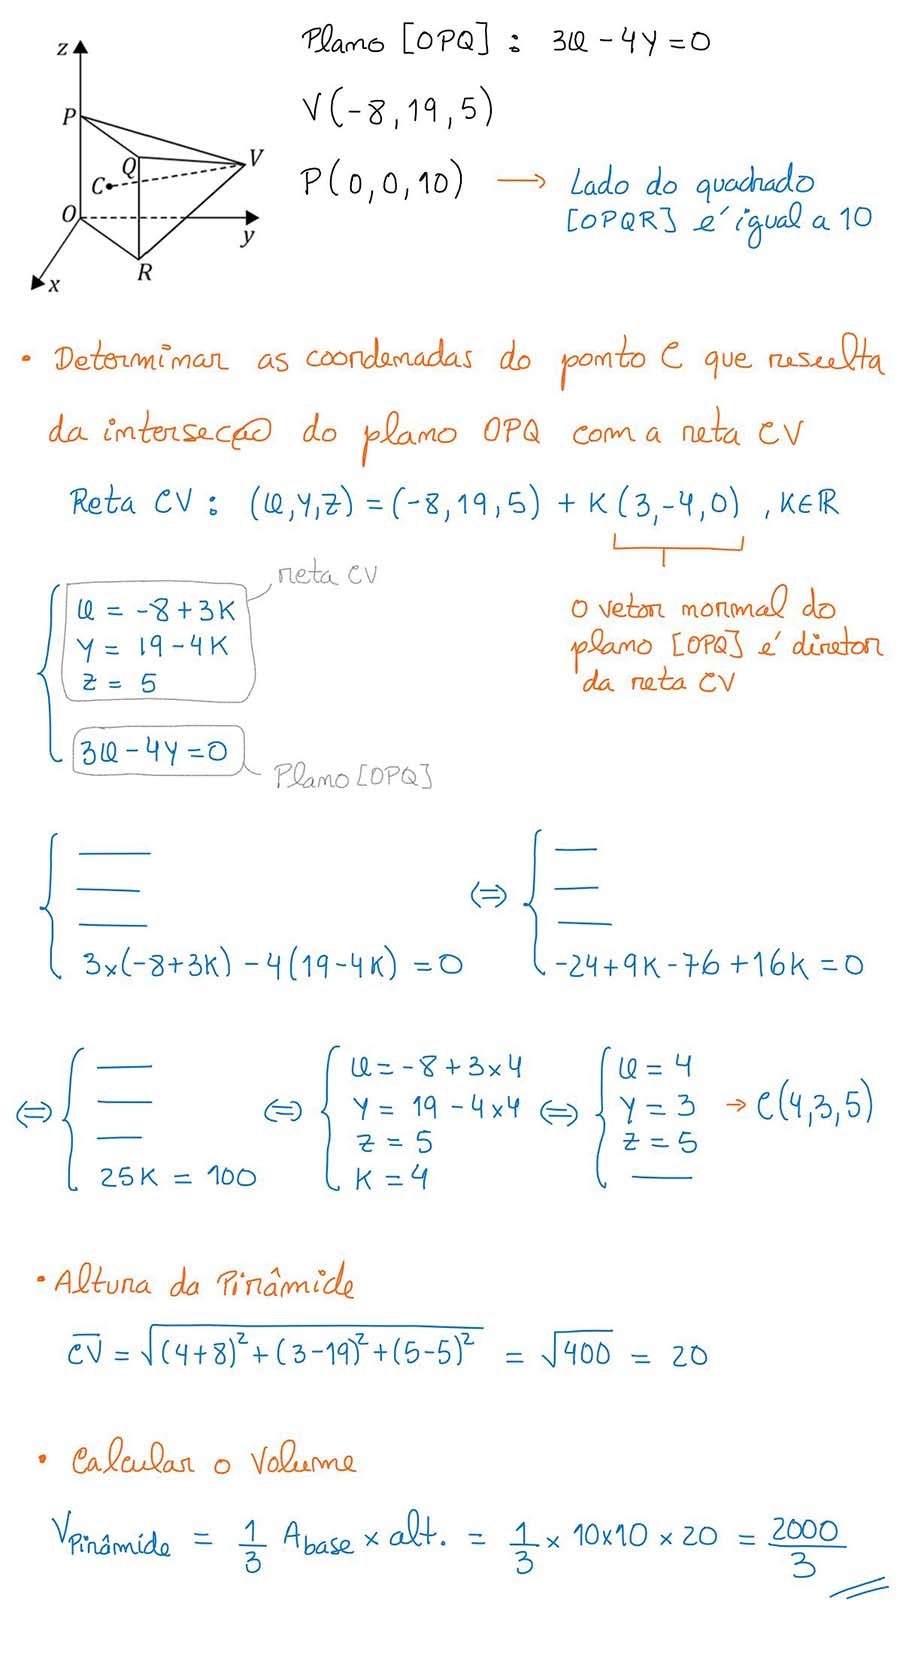 z
P
Q
V
C
O
y
R
x
Plano [OPQ] : 3x - 4y = 0
V(-8, 19, 5)
P(0, 0, 10) → Lado do quadrado
[OPQR] é igual a 10
• Determinar as coordenadas do ponto C que resulta
da interseção do plano OPQ com a reta CV
Reta CV : (x, y, z) = (-8, 19, 5) + K(3, -4, 0) , K∈ℝ
reta CV
x = -8 + 3K
y = 19 - 4K
z = 5
3x - 4y = 0
Plano [OPQ]
O vetor normal do
plano [OPQ] é diretor
da reta CV
3×(-8+3K) - 4(19-4K) = 0
⇔ -24 + 9K - 76 + 16K = 0
⇔ 25K = 100
⇔ x = -8 + 3×4
y = 19 - 4×4
z = 5
K = 4
⇔ x = 4
y = 3 → C(4, 3, 5)
z = 5
• Altura da Pirâmide
CV = √(4+8)² + (3-19)² + (5-5)² = √400 = 20
• Calcular o Volume
V Pirâmide = 1/3 A base × alt. = 1/3 × 10×10 × 20 = 2000/3